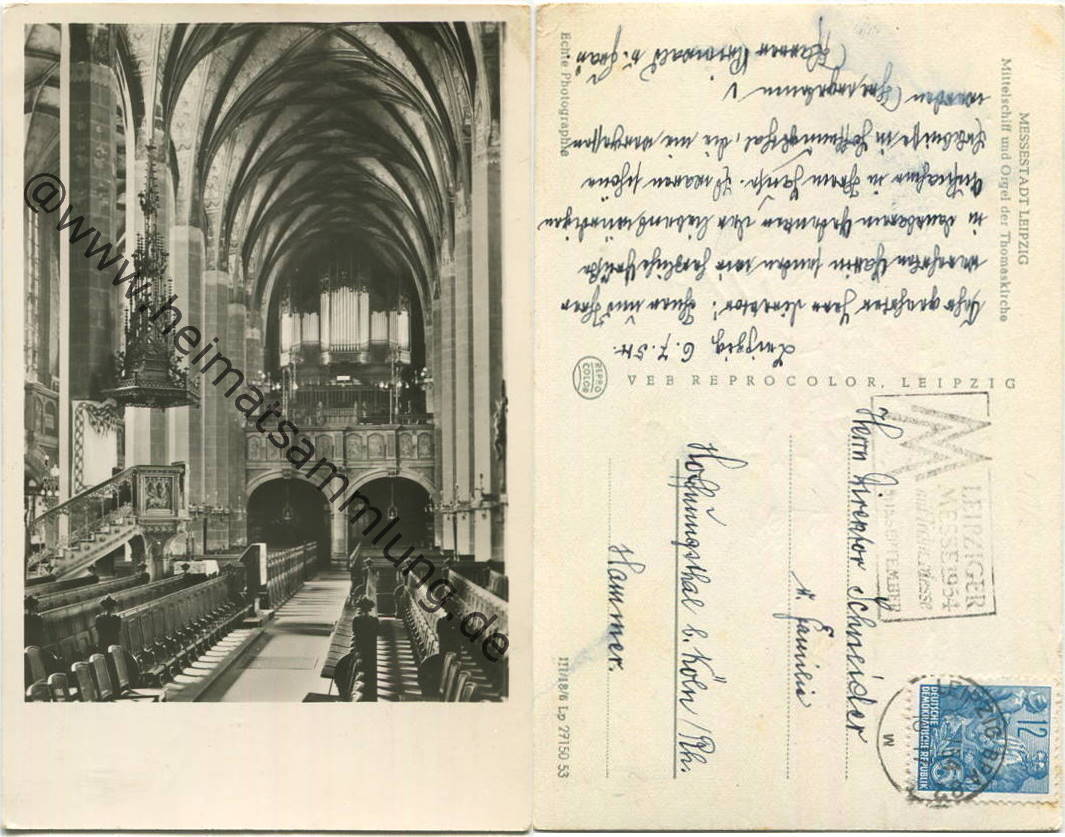 @www.heimatsammlung.de
MESSESTADT LEIPZIG
Mittelschiff und Orgel der Thomaskirche
Leipzig, 6.7.54.
Sehr geehrter Herr Direktor! Ihnen und Ihrer
verehrten Gattin senden wir herzliche Grüße
in dankbarem Gedenken der liebenswürdigen
Aufnahme in Ihrem Hause. Es waren schöne
in Hoffnungsthal, die nie vergessen
werden
Echte Photographie
REPRO
COLOR
VEB REPROCOLOR, LEIPZIG
LEIPZIGER
MESSE 1954
mit techn. Messe
SEPTEMBER
12
DEUTSCHE
DEMOKRATISCHE REPUBLIK
LEIPZIG BPA 32
Herrn Direktor Schneider
u. Familie
Hoffnungsthal b. Köln /Rh.
Hammer.
III/18/6 Lp 27150 53